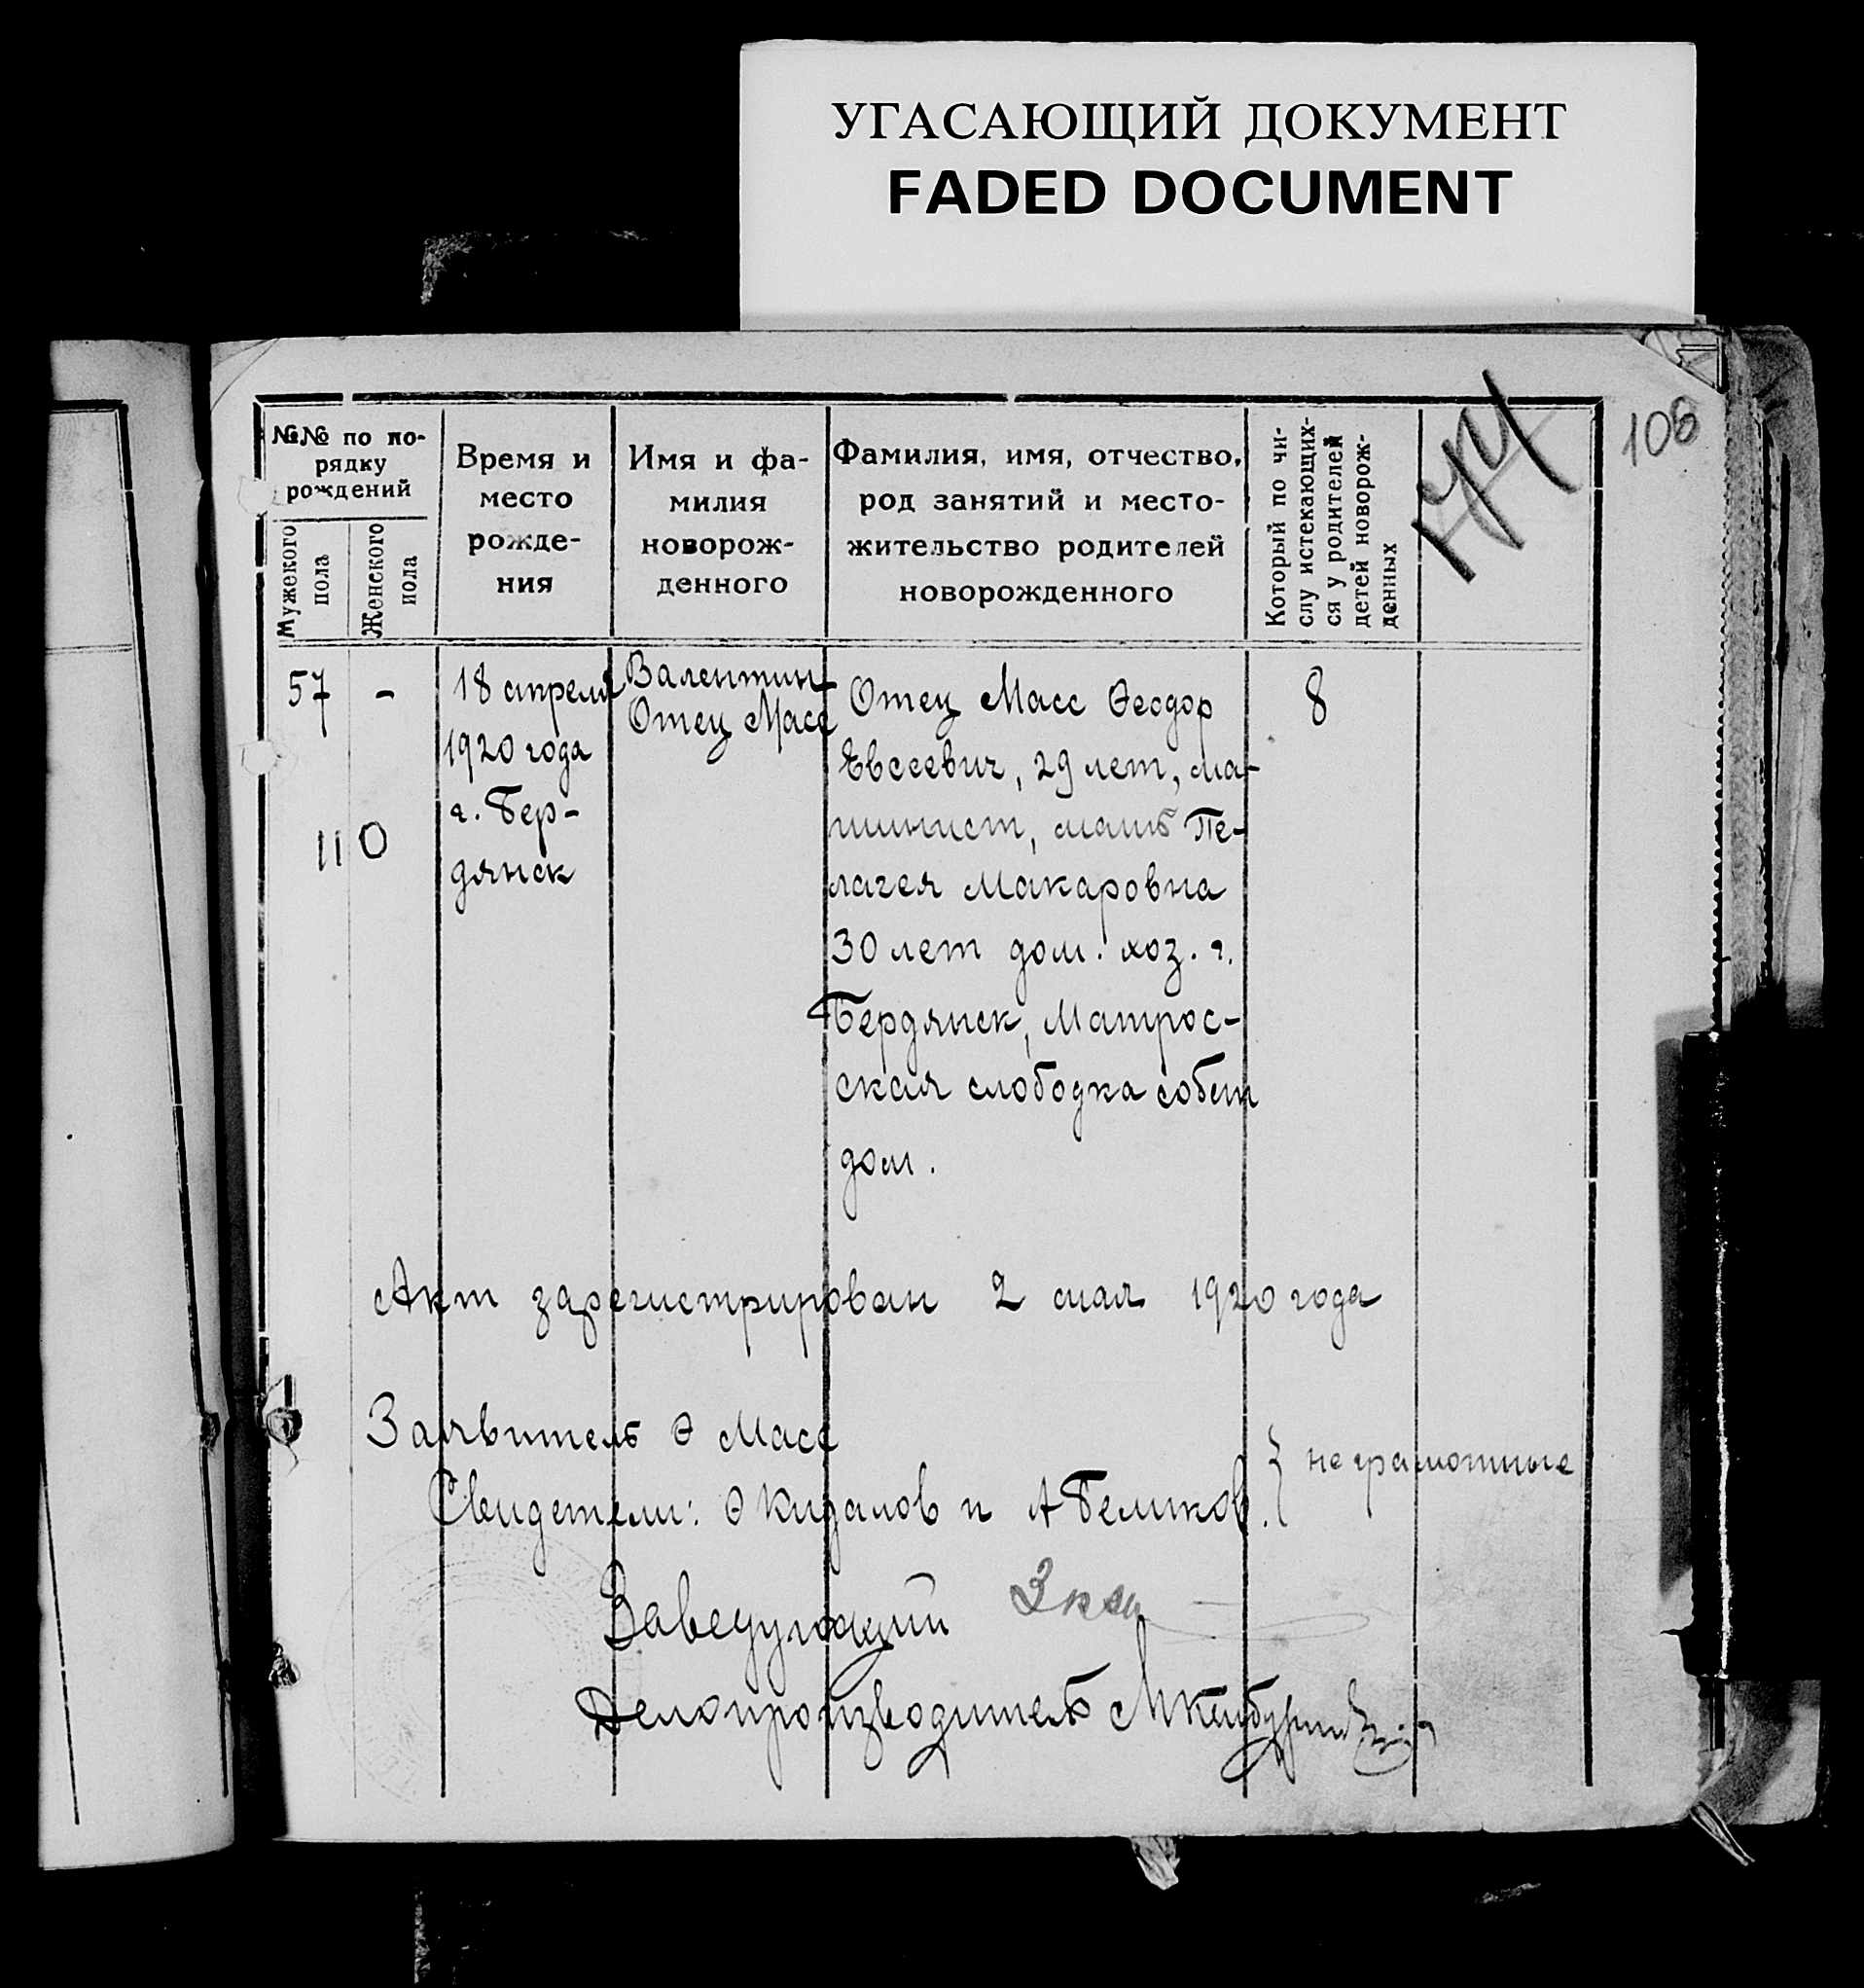 УГАСАЮЩИЙ ДОКУМЕНТ
FADED DOCUMENT
106
№№ по по-
рядку
рождений
Мужекого
пола
Женского
пола
Время и
место
рожде-
ния
Имя и фа-
милия
новорож-
денного
Фамилия, имя, отчество,
род занятий и место-
жительство родителей
новорожденного
Который по чи-
слу истекающих-
ся у родителей
детей новорож-
денных
57
-
110
18 апреля
1920 года
г. Бер-
дянск
Валентин
Отец Масс
Отец Масс Ѳеодор
Евсеевич, 29 лет, ма-
шинист, мать Пе-
лагея Макаровна
30 лет дом. хоз. г.
Бердянск, Матрос-
ская слободка собств
дом.
8
Акт зарегистрирован 2 мая 1920 года
Заявитель Ѳ Масс
Свидетели: Ѳ Кидалов и А Беликов.
} неграмотные
Заведующий
Делопроизводитель